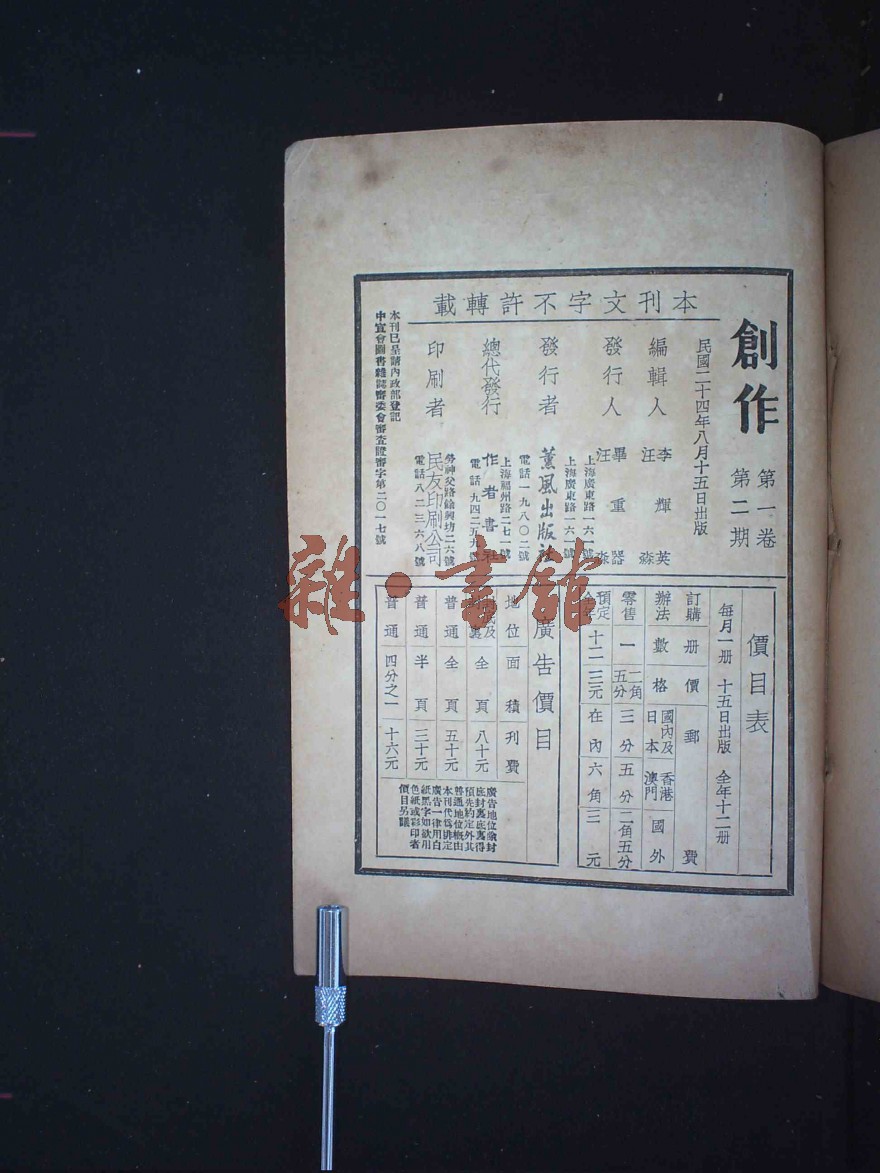 本刊文字不許轉載
創作
第一卷
第二期
民國二十四年八月十五日出版
編輯人
李輝英
汪淼
發行人
畢重器
汪淼
發行者
上海廣東路一六一號
薰風出版社
上海廣東路一六一號
電話一九八〇二號
總代發行
上海福州路二七一號
作者書社
電話九四二五九號
印刷者
勞神父路餘興坊二六號
民友印刷公司
電話八二三六八號
本刊已呈請內政部登記
中宣會圖書雜誌審委會審查證審字第二〇一七號
價目表
每月一册 十五日出版 全年十二册
訂購 册 價 郵 費
辦法 數 格 國內及日本 香港澳門 國外
零售 一 二角五分 三分 五分 二角五分
預定 十二 三元 在內 六角 三元
廣告價目
地位 面積 刊費
全頁 八十元
普通 全頁 五十元
普通 半頁 三十元
普通 四分之一 十六元
廣告地位除封
底封裏底裏得
預先約定外其
普通地位概由
本刊代爲排定
廣告一律用白
紙黑字如欲用
色紙或彩印者
價目另議
雜·書館